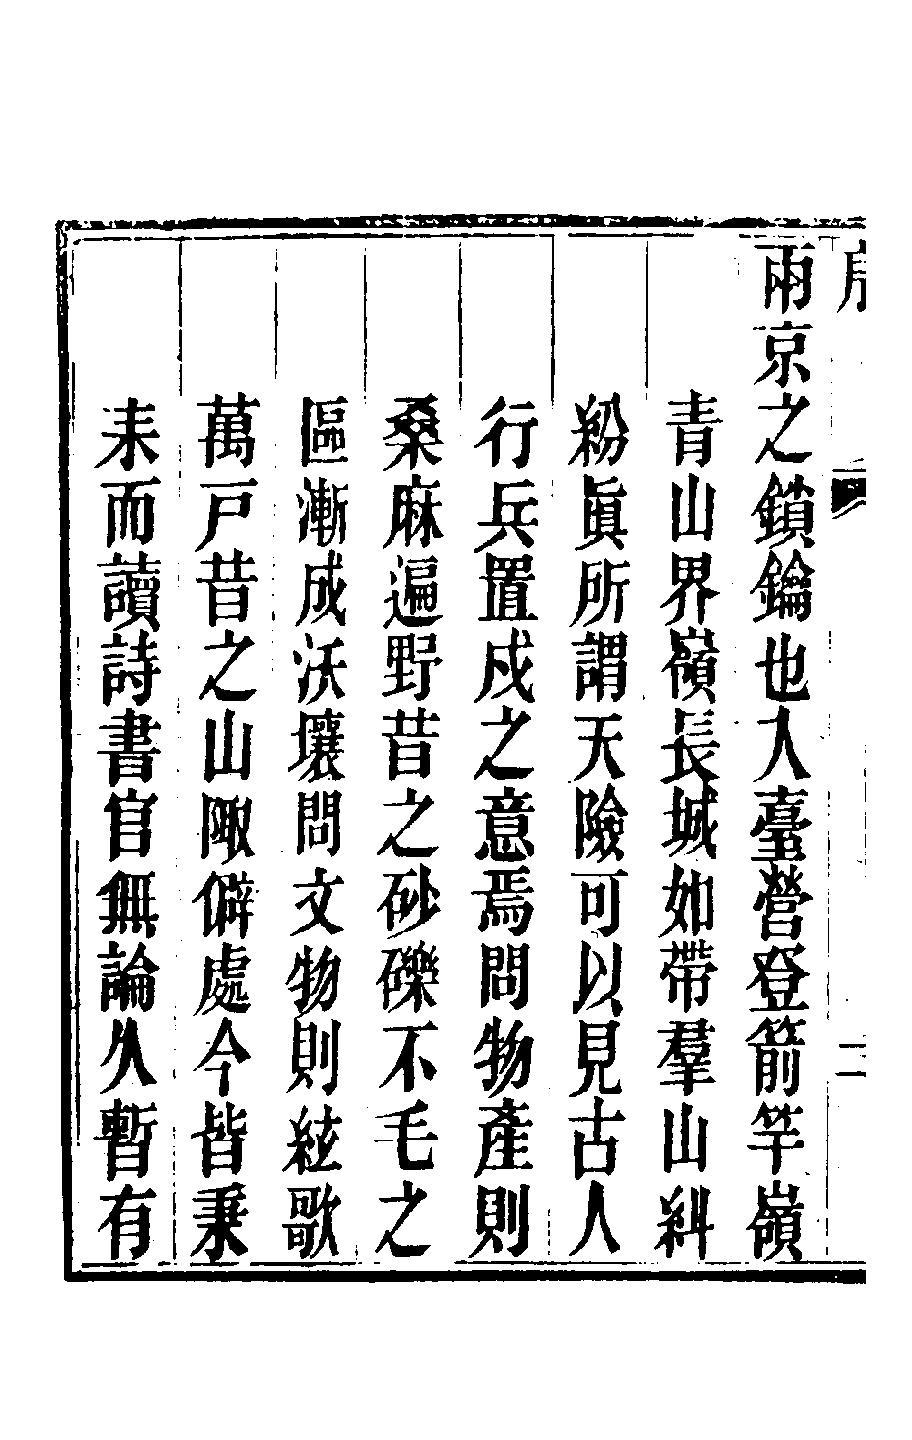 序
二
兩京之鎖鑰也入臺營登箭竿嶺
青山界嶺長城如帶羣山糾
紛眞所謂天險可以見古人
行兵置戍之意焉問物產則
桑麻遍野昔之砂礫不毛之
區漸成沃壤問文物則絃歌
萬戸昔之山陬僻處今皆秉
耒而讀詩書官無論久暫有